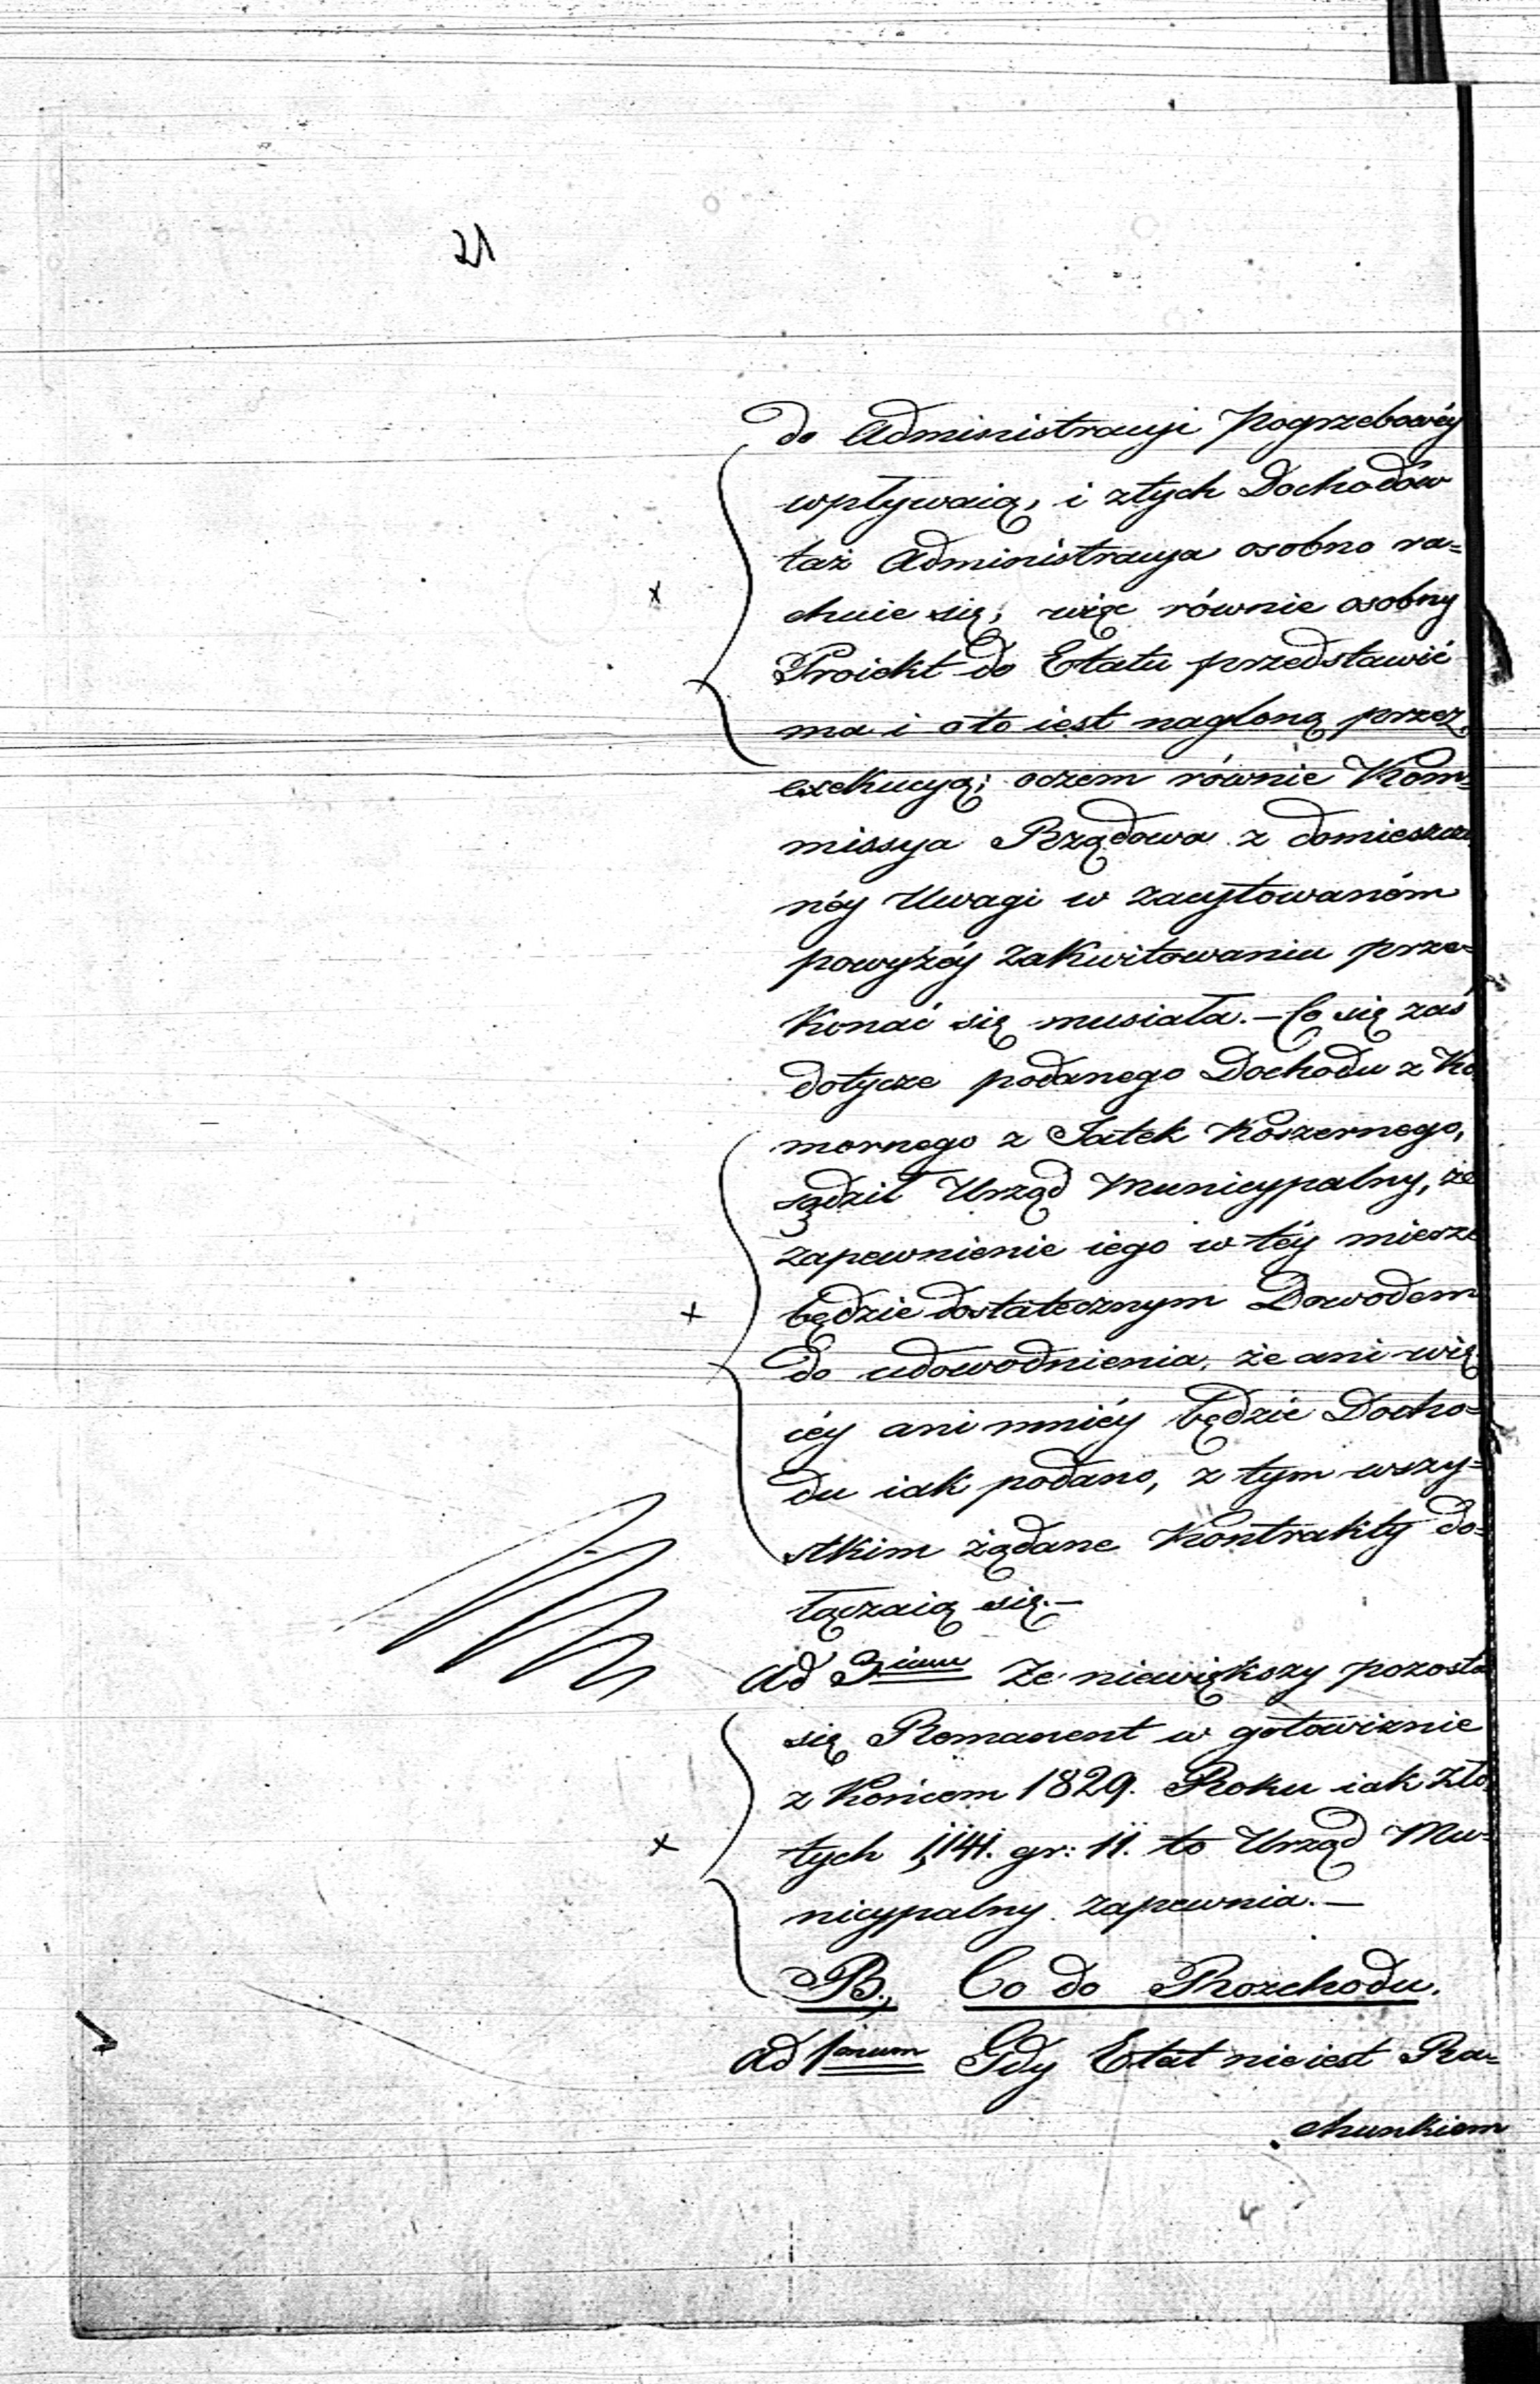 21
do Administracyi Pogrzebowéy
wpływaią, i ztych Dochodów
taż Administracya osobno ra=
chuie się, więc równie osobny
Proiekt do Etatu przedstawić
ma i oto iest nagloną przez
exekucyą; oczem równie Kom=
missya Rządowa z domieszczo
néy Uwagi w zacytowaném
powyżéy zakwitowaniu prze=
konać się musiała. – Co się zaś
dotycze podanego Dochodu z Ko
mornego z Jatek Koszernego,
sądził Urząd Municypalny, że
zapewnienie iego w téy mierze
będzie dostatecznym Dowodem
do udowodnienia, że ani wię
céy ani mniéy będzie Docho=
du iak podano, z tym wszy=
stkim żądane Kontrakty do=
łączaią się. –
Ad 3ium Że niewiększy pozosta
się Remanent w gotowiznie
z Końcem 1829. Roku iak Zło
tych 1,141. gr: 11. to Urząd Mu=
nicypalny zapewnia. –
B., Co do Rozchodu.
Ad 1mum Gdy Etat nie iest Ra=
chunkiem